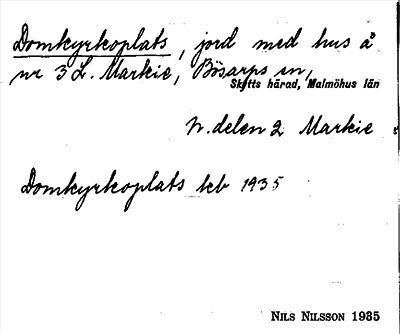 Domkyrkoplats, jord med hus å
nr 3 L. Markie, Bösarps sn,
Skytts härad, Malmöhus län
N. delen 2 Markie
Domkyrkoplats kb 1935
NILS NILSSON 1935